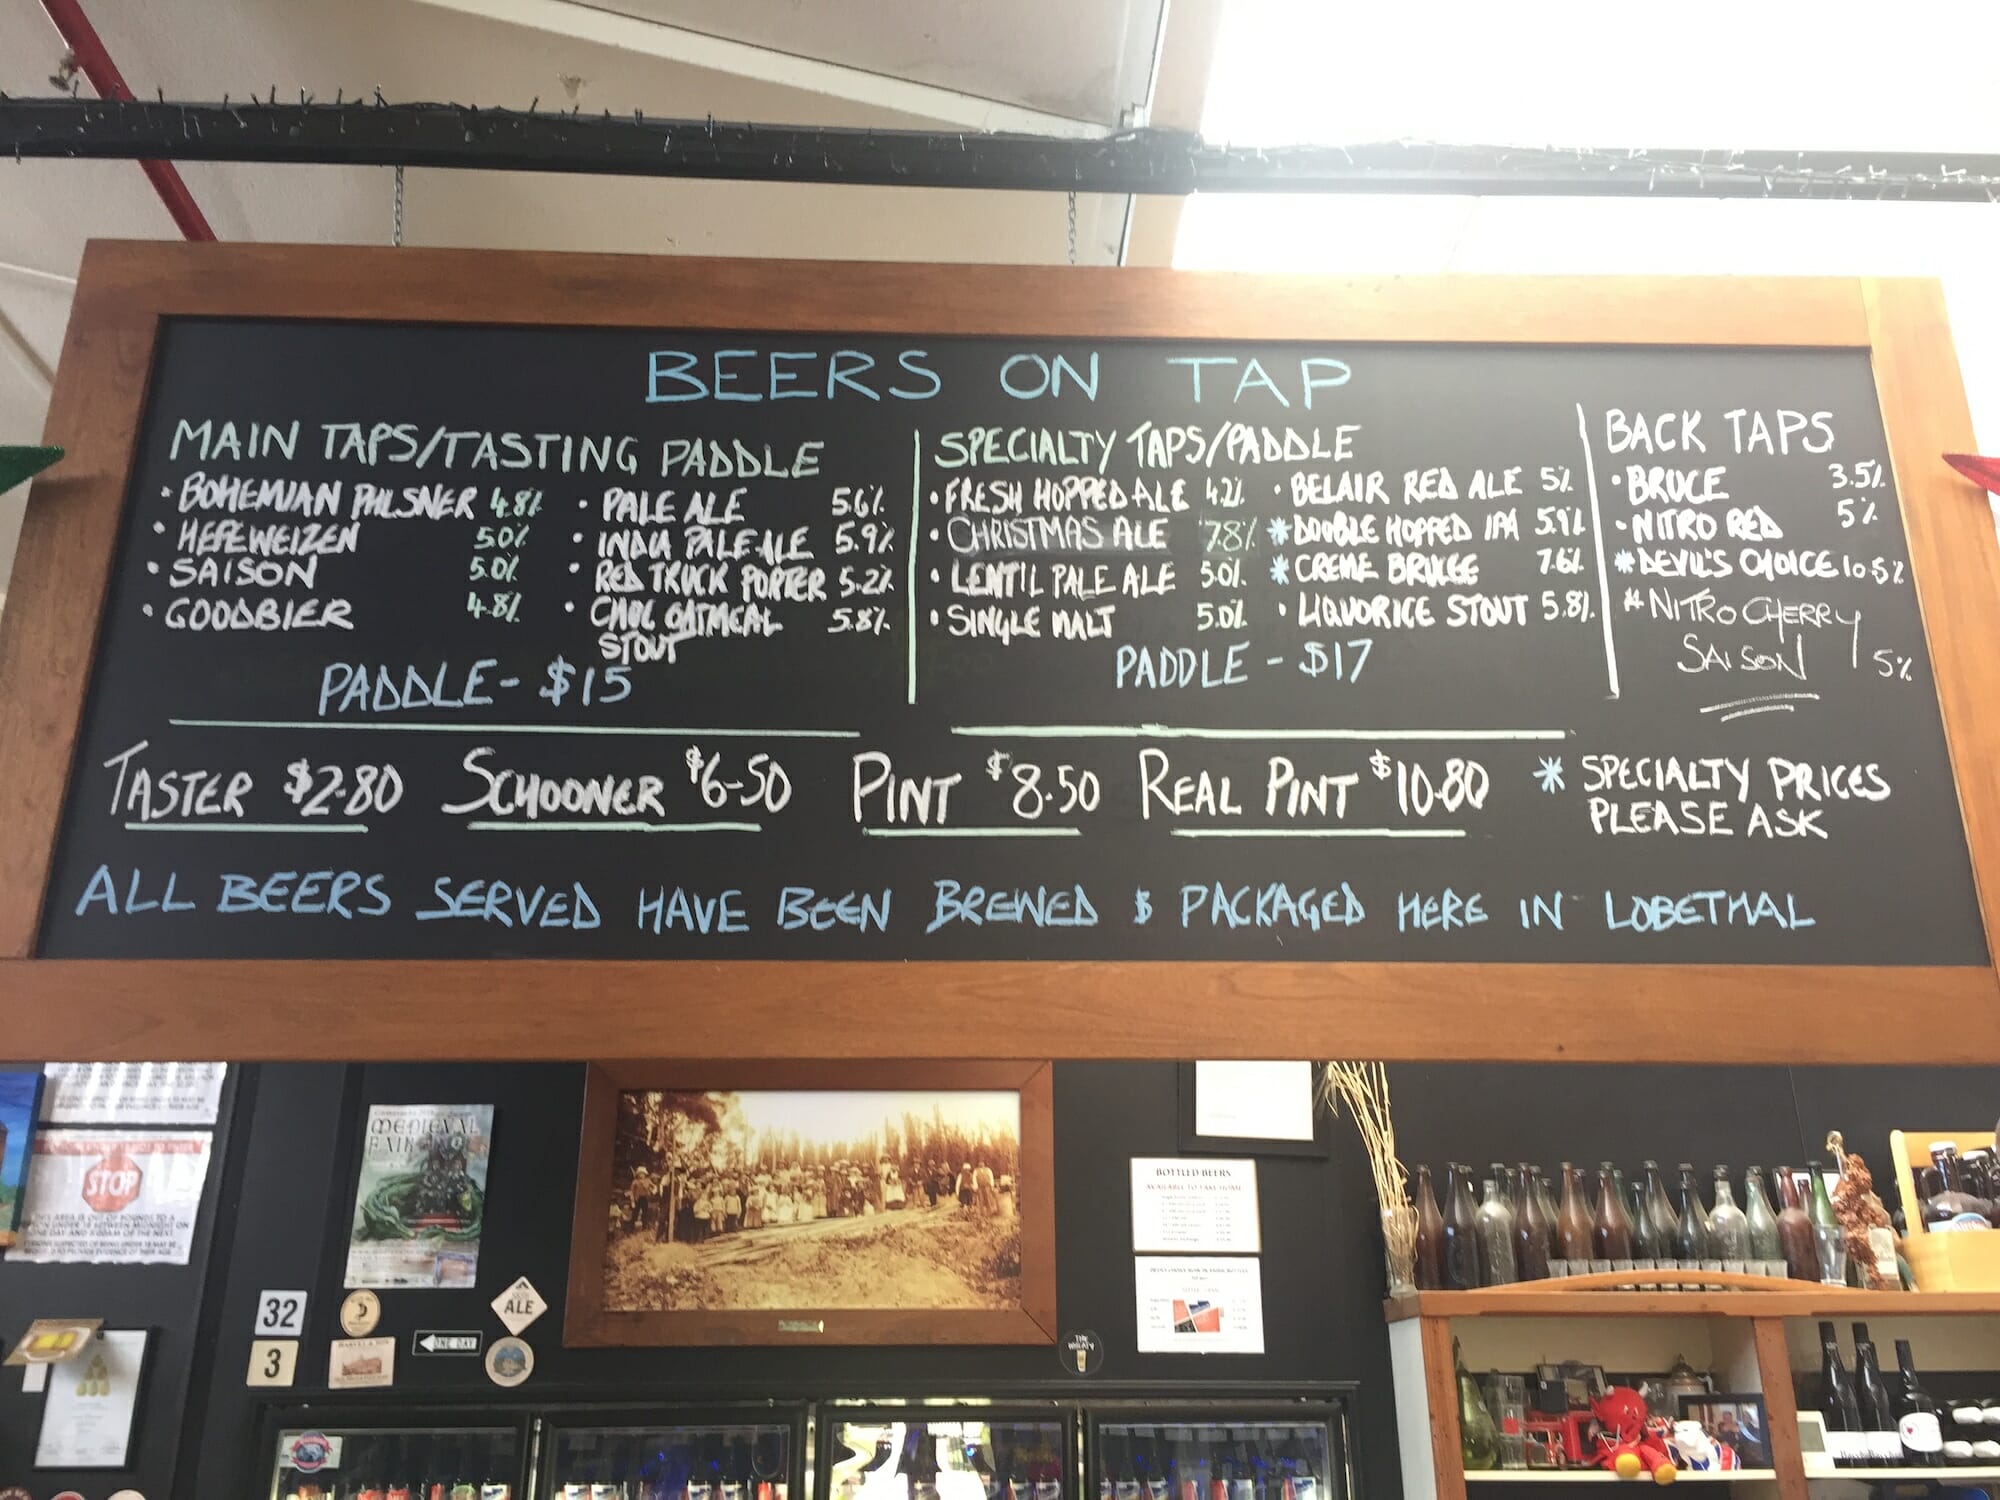 BEERS ON TAP
MAIN TAPS/TASTING PADDLE
• BOHEMIAN PHLSNER 4.8%
• HEFEWEIZEN 5.0%
• SAISON 5.0%
• GOODBIER 4.8%
• PALE ALE 5.6%
• INDIA PALE ALE 5.9%
• RED TRUCK PORTER 5.2%
• CHOC OATMEAL 5.8%
STOUT
PADDLE - $15
SPECIALTY TAPS/PADDLE
• FRESH HOPPED ALE 4.2%
• CHRISTMAS ALE 7.8%
• LENTIL PALE ALE 5.0%
• SINGLE MALT 5.0%
• BELAIR RED ALE 5%
* DOUBLE HOPPED IPA 5.9%
* CREME BRUGE 7.6%
• LIQUORICE STOUT 5.8%
PADDLE - $17
BACK TAPS
• BRUCE 3.5%
• NITRO RED 5%
* DEVIL'S CHOICE 10.5%
* NITRO CHERRY
SAISON 5%
TASTER $2.80 SCHOONER $6-50 PINT $8.50 REAL PINT $10.80
* SPECIALTY PRICES
PLEASE ASK
ALL BEERS SERVED HAVE BEEN BREWED & PACKAGED HERE IN LOBETHAL
STOP
THIS AREA IS OUT OF BOUNDS TO A
PERSON UNDER 18 BETWEEN MIDNIGHT ON
ONE DAY AND 5:00AM OF THE NEXT
MEDIEVAL
FAIR
32
3
ALE
ONE DAY
BOTTLED BEERS
AVAILABLE TO TAKE HOME
THE
WHEATY